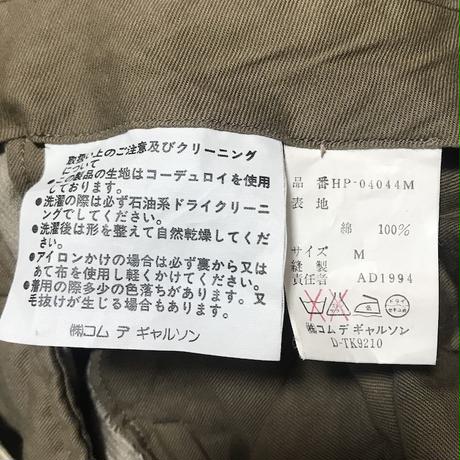 取扱い上のご注意及びクリーニング
について
●この製品の生地はコーデュロイを使用
しております。
●洗濯の際は必ず石油系ドライクリーニ
ングでしてください。
●洗濯後は形を整えて自然乾燥してくだ
さい。
●アイロンかけの場合は必ず裏から又は
あて布を使用し軽くかけてください。
●着用の際多少の色落ちがあります。又
毛抜けが生じる場合もあります。
㈱コム デ ギャルソン
品番HP-04044M
表地
綿 100%
サイズ M
縫製
責任者 AD1994
ドライ
セキユ系
㈱コム デ ギャルソン
D-TK9210